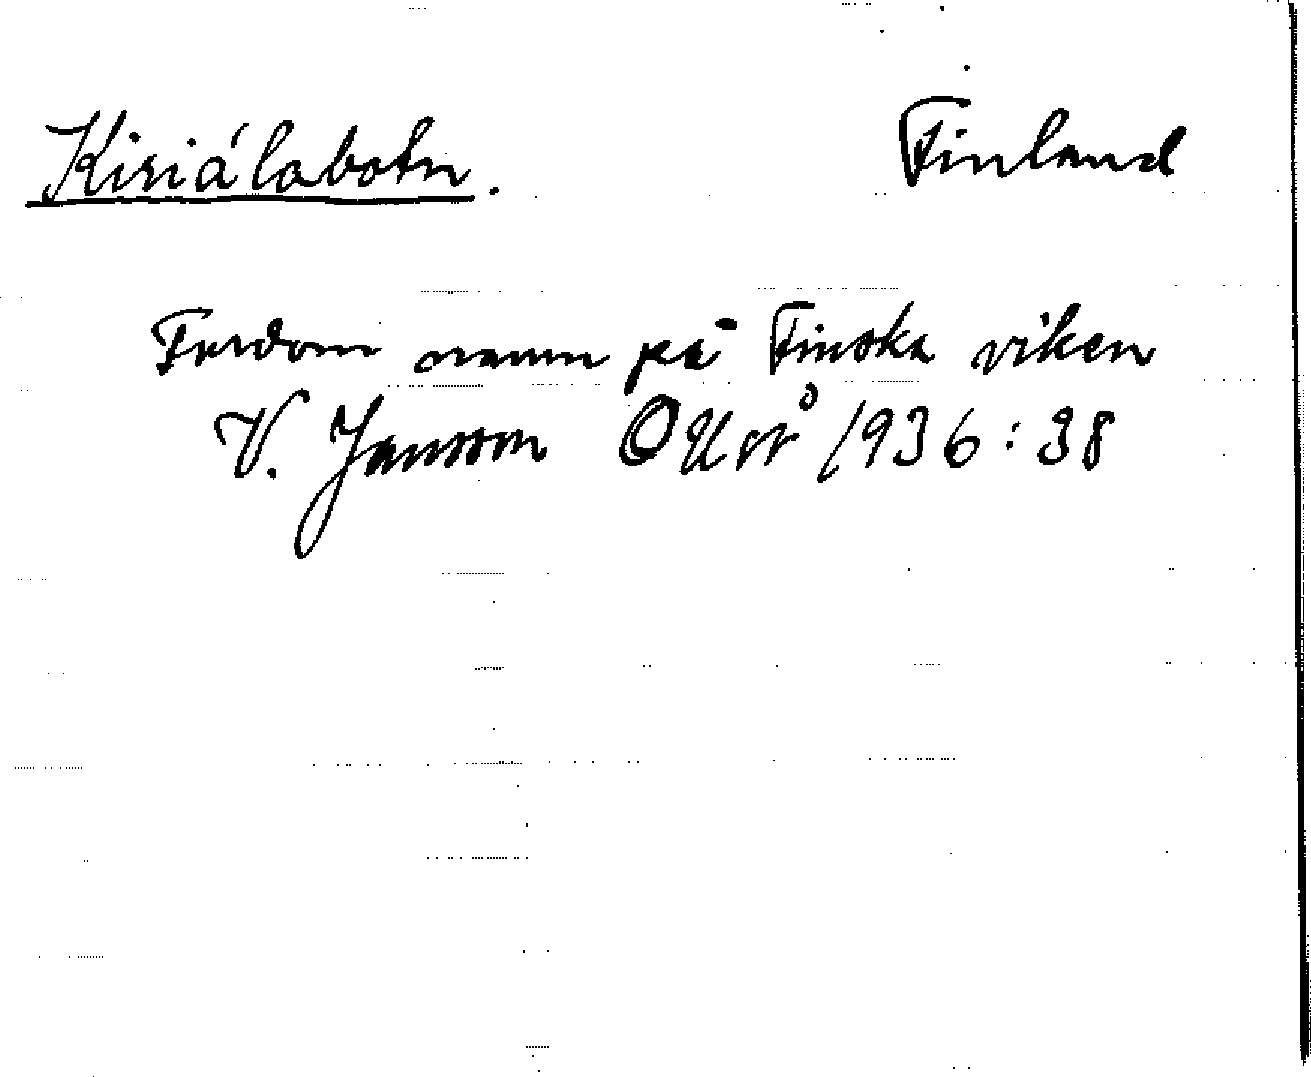 Kiriálabotn. Finland
Fordom namn på Finska viken
V. Jansson OUoÅ 1936:38